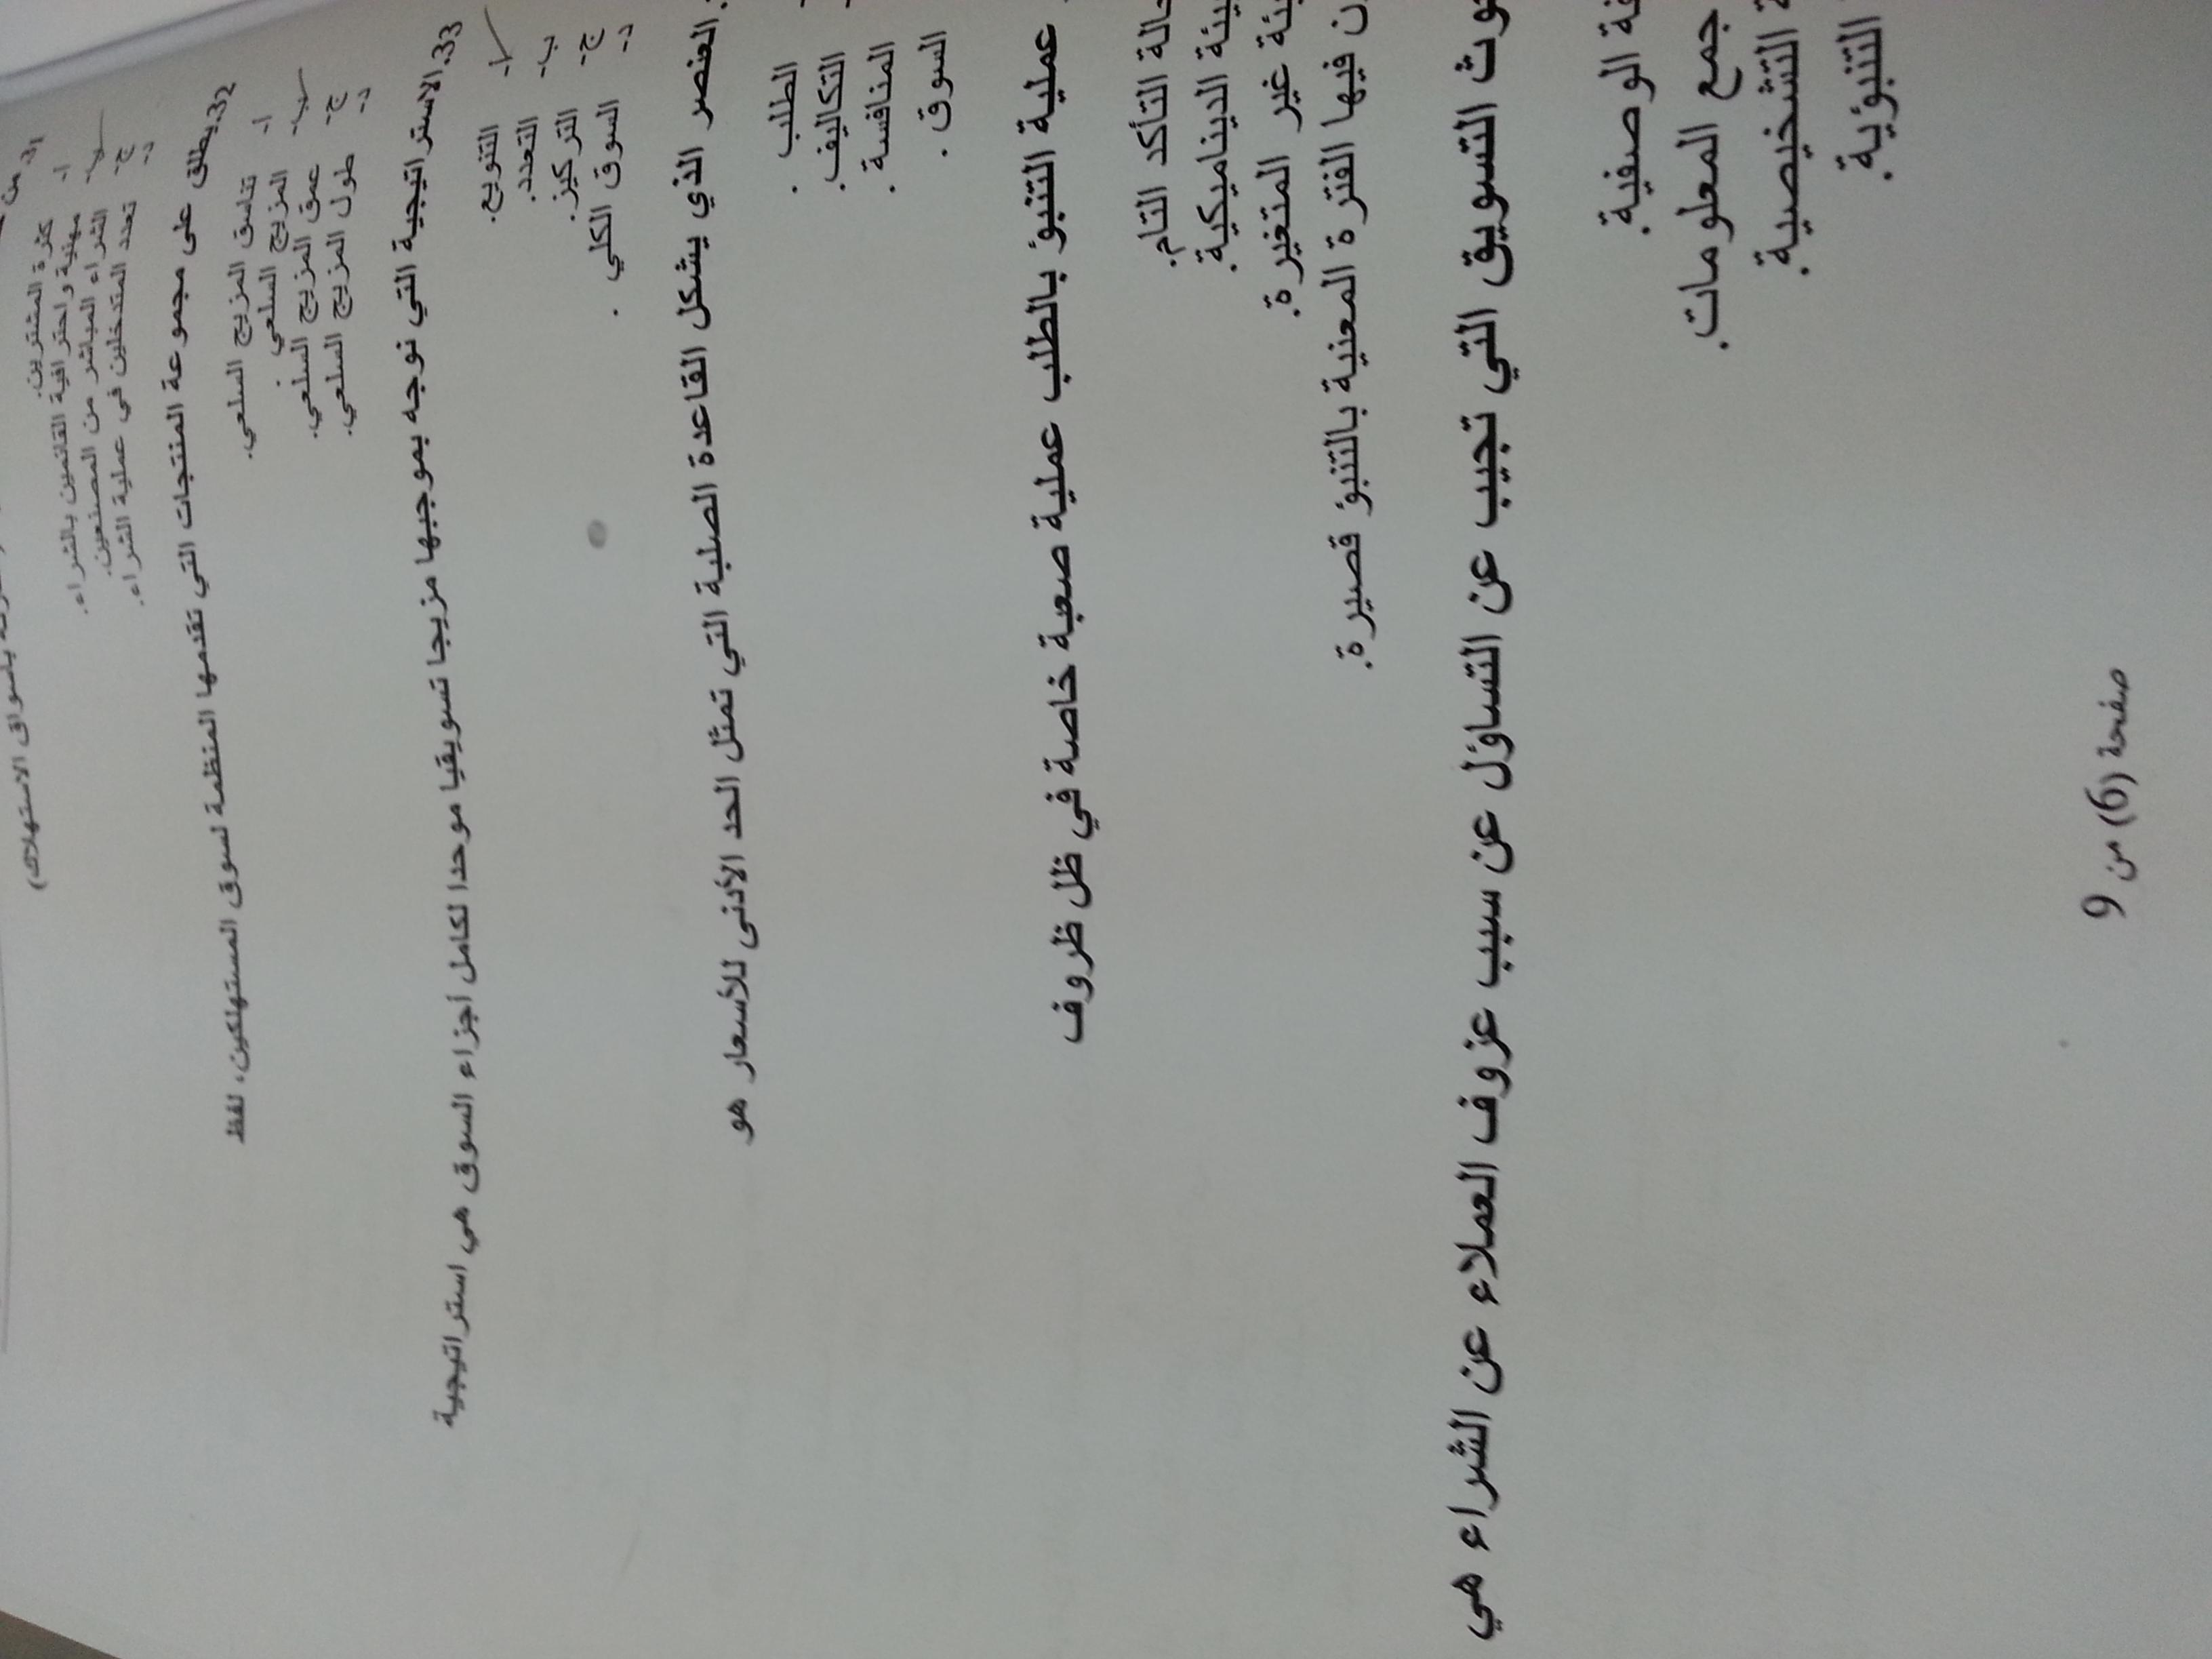 31. من
باسواق الاستهلاك)
أ- كثرة المشترين.
ب- مهنية واحترافية القائمين بالشراء.
ج- الشراء المباشر من المصنعين.
د- تعدد المتدخلين في عملية الشراء.
32. يطلق على مجموعة المنتجات التي تقدمها المنظمة لسوق المستهلكين، لفظ
أ- تناسق المزيج السلعي.
ب- المزيج السلعي
ج- عمق المزيج السلعي.
د- طول المزيج السلعي.
33. الاستراتيجية التي نوجه بموجبها مزيجا تسويقيا موحدا لكامل أجزاء السوق هي استراتيجية
أ- التنويع.
ب- التعدد.
ج- التركيز.
د- السوق الكلي .
العنصر الذي يشكل القاعدة الصلبة التي تمثل الحد الأدنى للأسعار هو
الطلب .
التكاليف.
المنافسة .
السوق .
عملية التنبؤ بالطلب عملية صعبة خاصة في ظل ظروف
التأكد التام.
الديناميكية.
غير المتغيرة.
فيها الفترة المعنية بالتنبؤ قصيرة.
التسويق التي تجيب عن التساؤل عن سبب عزوف العملاء عن الشراء هي
الوصفية.
جمع المعلومات.
التشخيصية.
التنبؤية.
صفحة (6) من 9